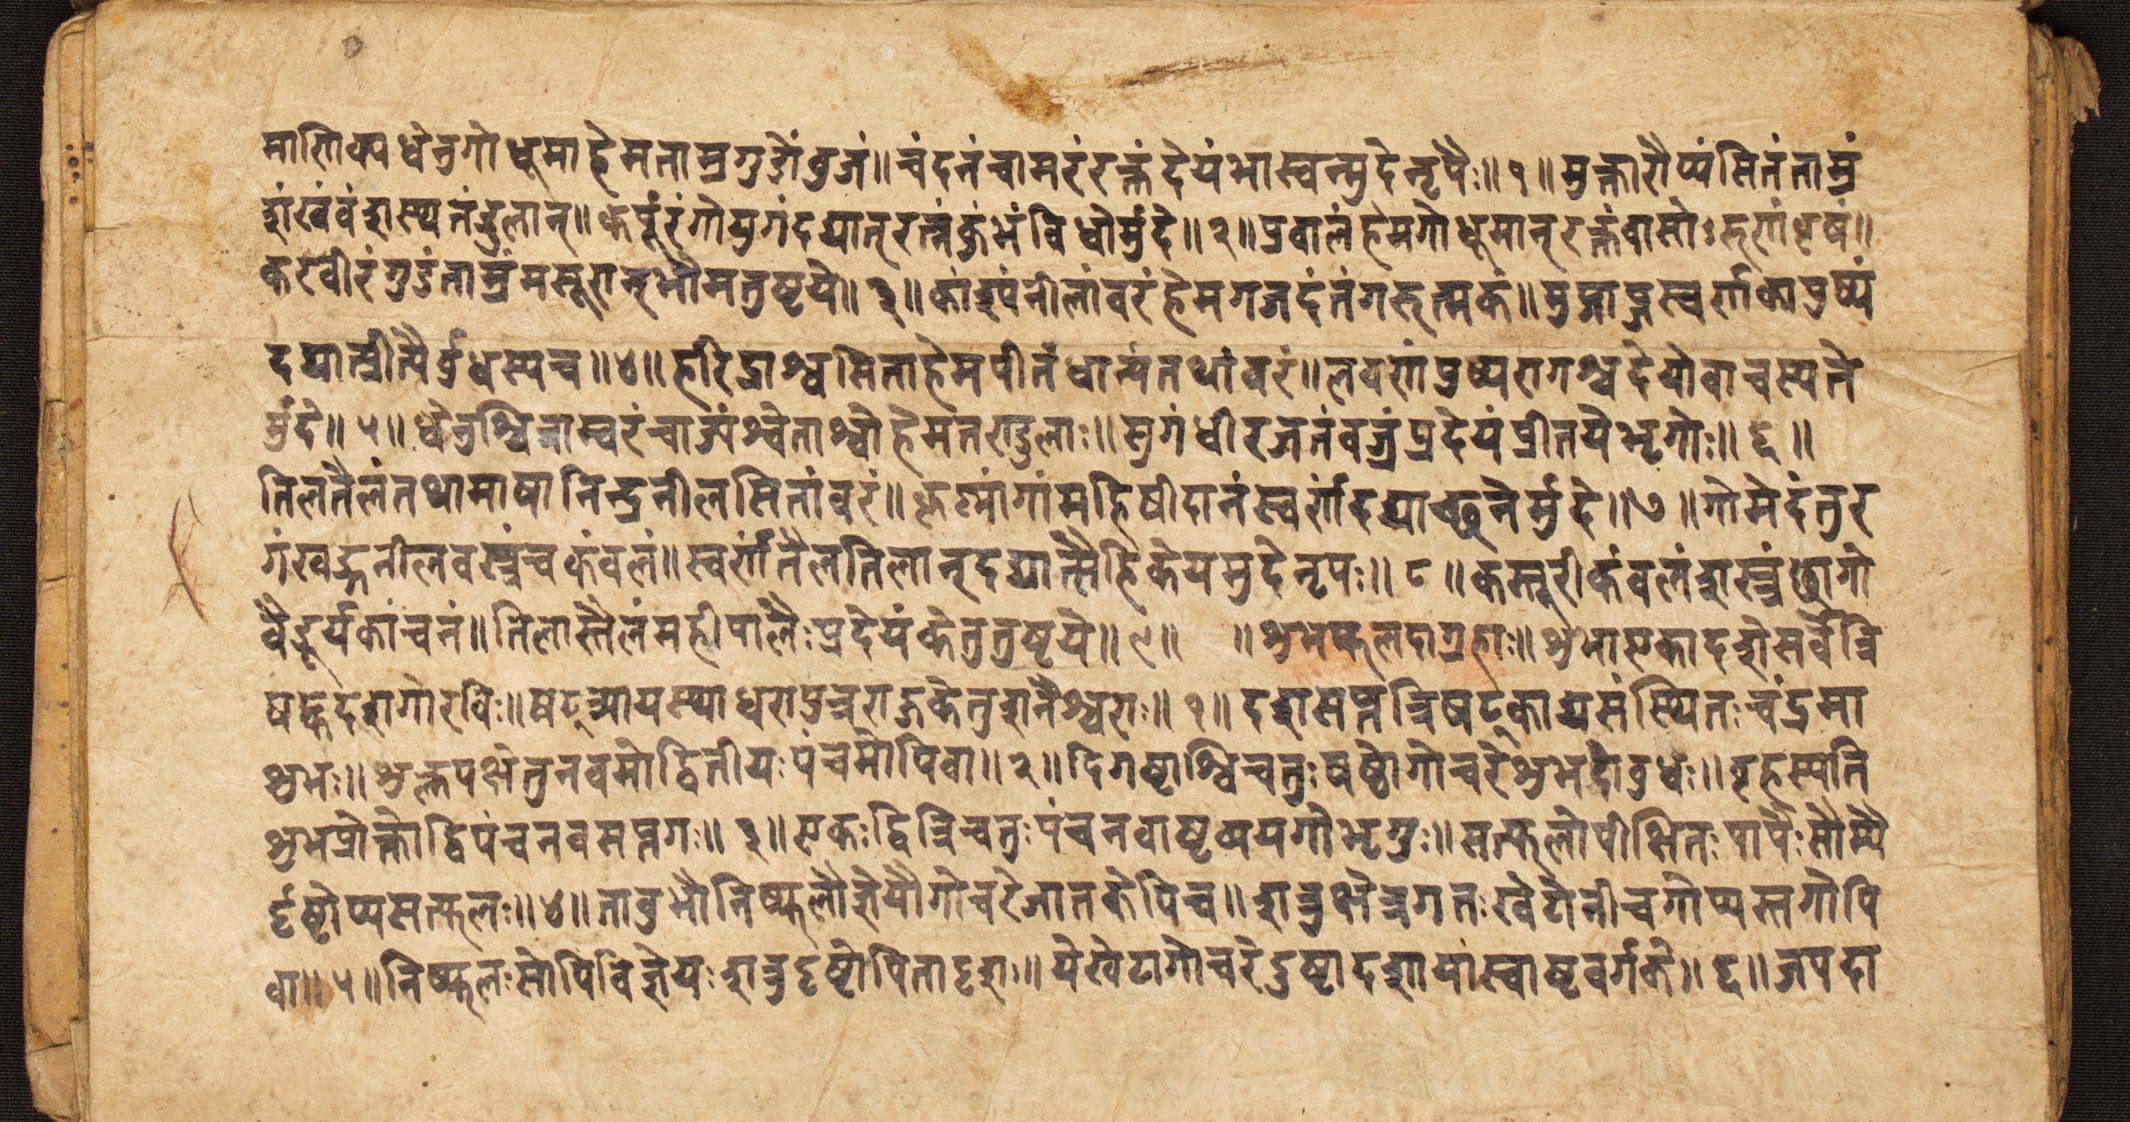 माणिक्य धेनुगोधूमा हेमताम्रगुडांबुजं॥ चंदनंचामरंरक्तं देयंभास्वन्मुदेनृपैः॥ १॥ मुक्तारौप्यंसितंताम्रं
शंखंवंशस्यतंदुलान्॥ कर्पूरंगोयुगंदद्यात्रत्नंकुंभंविधोर्मुदे॥ २॥ प्रवालंहेमगोधूमान्रक्तंवासोऽरुणंवृषं॥
करवीरंगुडंताम्रंमसूरान्भौमतुष्टये॥ ३॥ कांश्यंनीलांवरंहेमगजदंतंगरुत्मकं॥ मुद्गाज्यस्वर्णकापुष्पं
दद्यात्प्रीत्यैर्वुधस्यच॥ ४॥ हरिद्राश्वसिताहेमपीतंधान्यंतथांवरं॥ लवणंपुष्परागश्वदेयोवाचस्पते
र्मुदे॥ ५॥ धेनुश्चित्राम्वरंचाज्यंश्वेताश्वोहेमतण्डुलाः॥ सुगंधीरजतंवज्रंप्रदेयंप्रीतयेभृगोः॥ ६॥
तिलतैलंतथामाषानिन्द्रनीलसितांवरं॥ कृष्णांगांमहिषीदानंस्वर्णंदद्याच्छनेर्मुदे॥ ७॥ गोमेदंतुर
गंखड्गनीलवस्त्रंचकंवलं॥ स्वर्णंतैलतिलान्दद्यात्सैंहिकेयमुदेनृपः॥ ८॥ कस्तूरीकंवलंशस्त्रंछागो
वैडूर्यकांचनं॥ तिलास्तैलंमहीपालैःप्रदेयंकेतुतुष्टये॥ ९॥ ॥ शुभफलदाग्रहाः॥ शुभाएकादशेसर्वेत्रि
षष्ठदशगोरविः॥ षट्त्र्यायस्थाधरापुत्रराहुकेतुशनैश्वराः॥ १॥ दशसप्तत्रिषट्काद्यसंस्थितःचंद्रमा
शुभः॥ शुक्लपक्षेतुनवमोद्वितीयःपंचमोपिवा॥ २॥ दिगष्टाश्विचतुःषष्ठोगोचरेशुभदोवुधः॥ वृहस्पति
शुभप्रोक्तोद्विपंचनवसप्तगः॥ ३॥ एकःद्वित्रिचतुःपंचनवाष्टव्ययगोभृगुः॥ सत्फलोपीक्षितःपापैःसौम्यै
र्दृष्टोप्यसत्फलः॥ ४॥ तावुभौनिष्फलौज्ञेयौगोचरेजातकेपिच॥ शत्रुक्षेत्रगतःखेटोनीचगोप्यस्तगोपि
वा॥ ५॥ निष्फलःसोपिविज्ञेयःशत्रुदृष्टोपितादृशः॥ येखेटागोचरेदुष्टादशायांस्वाष्टवर्गके॥ ६॥ जपदा